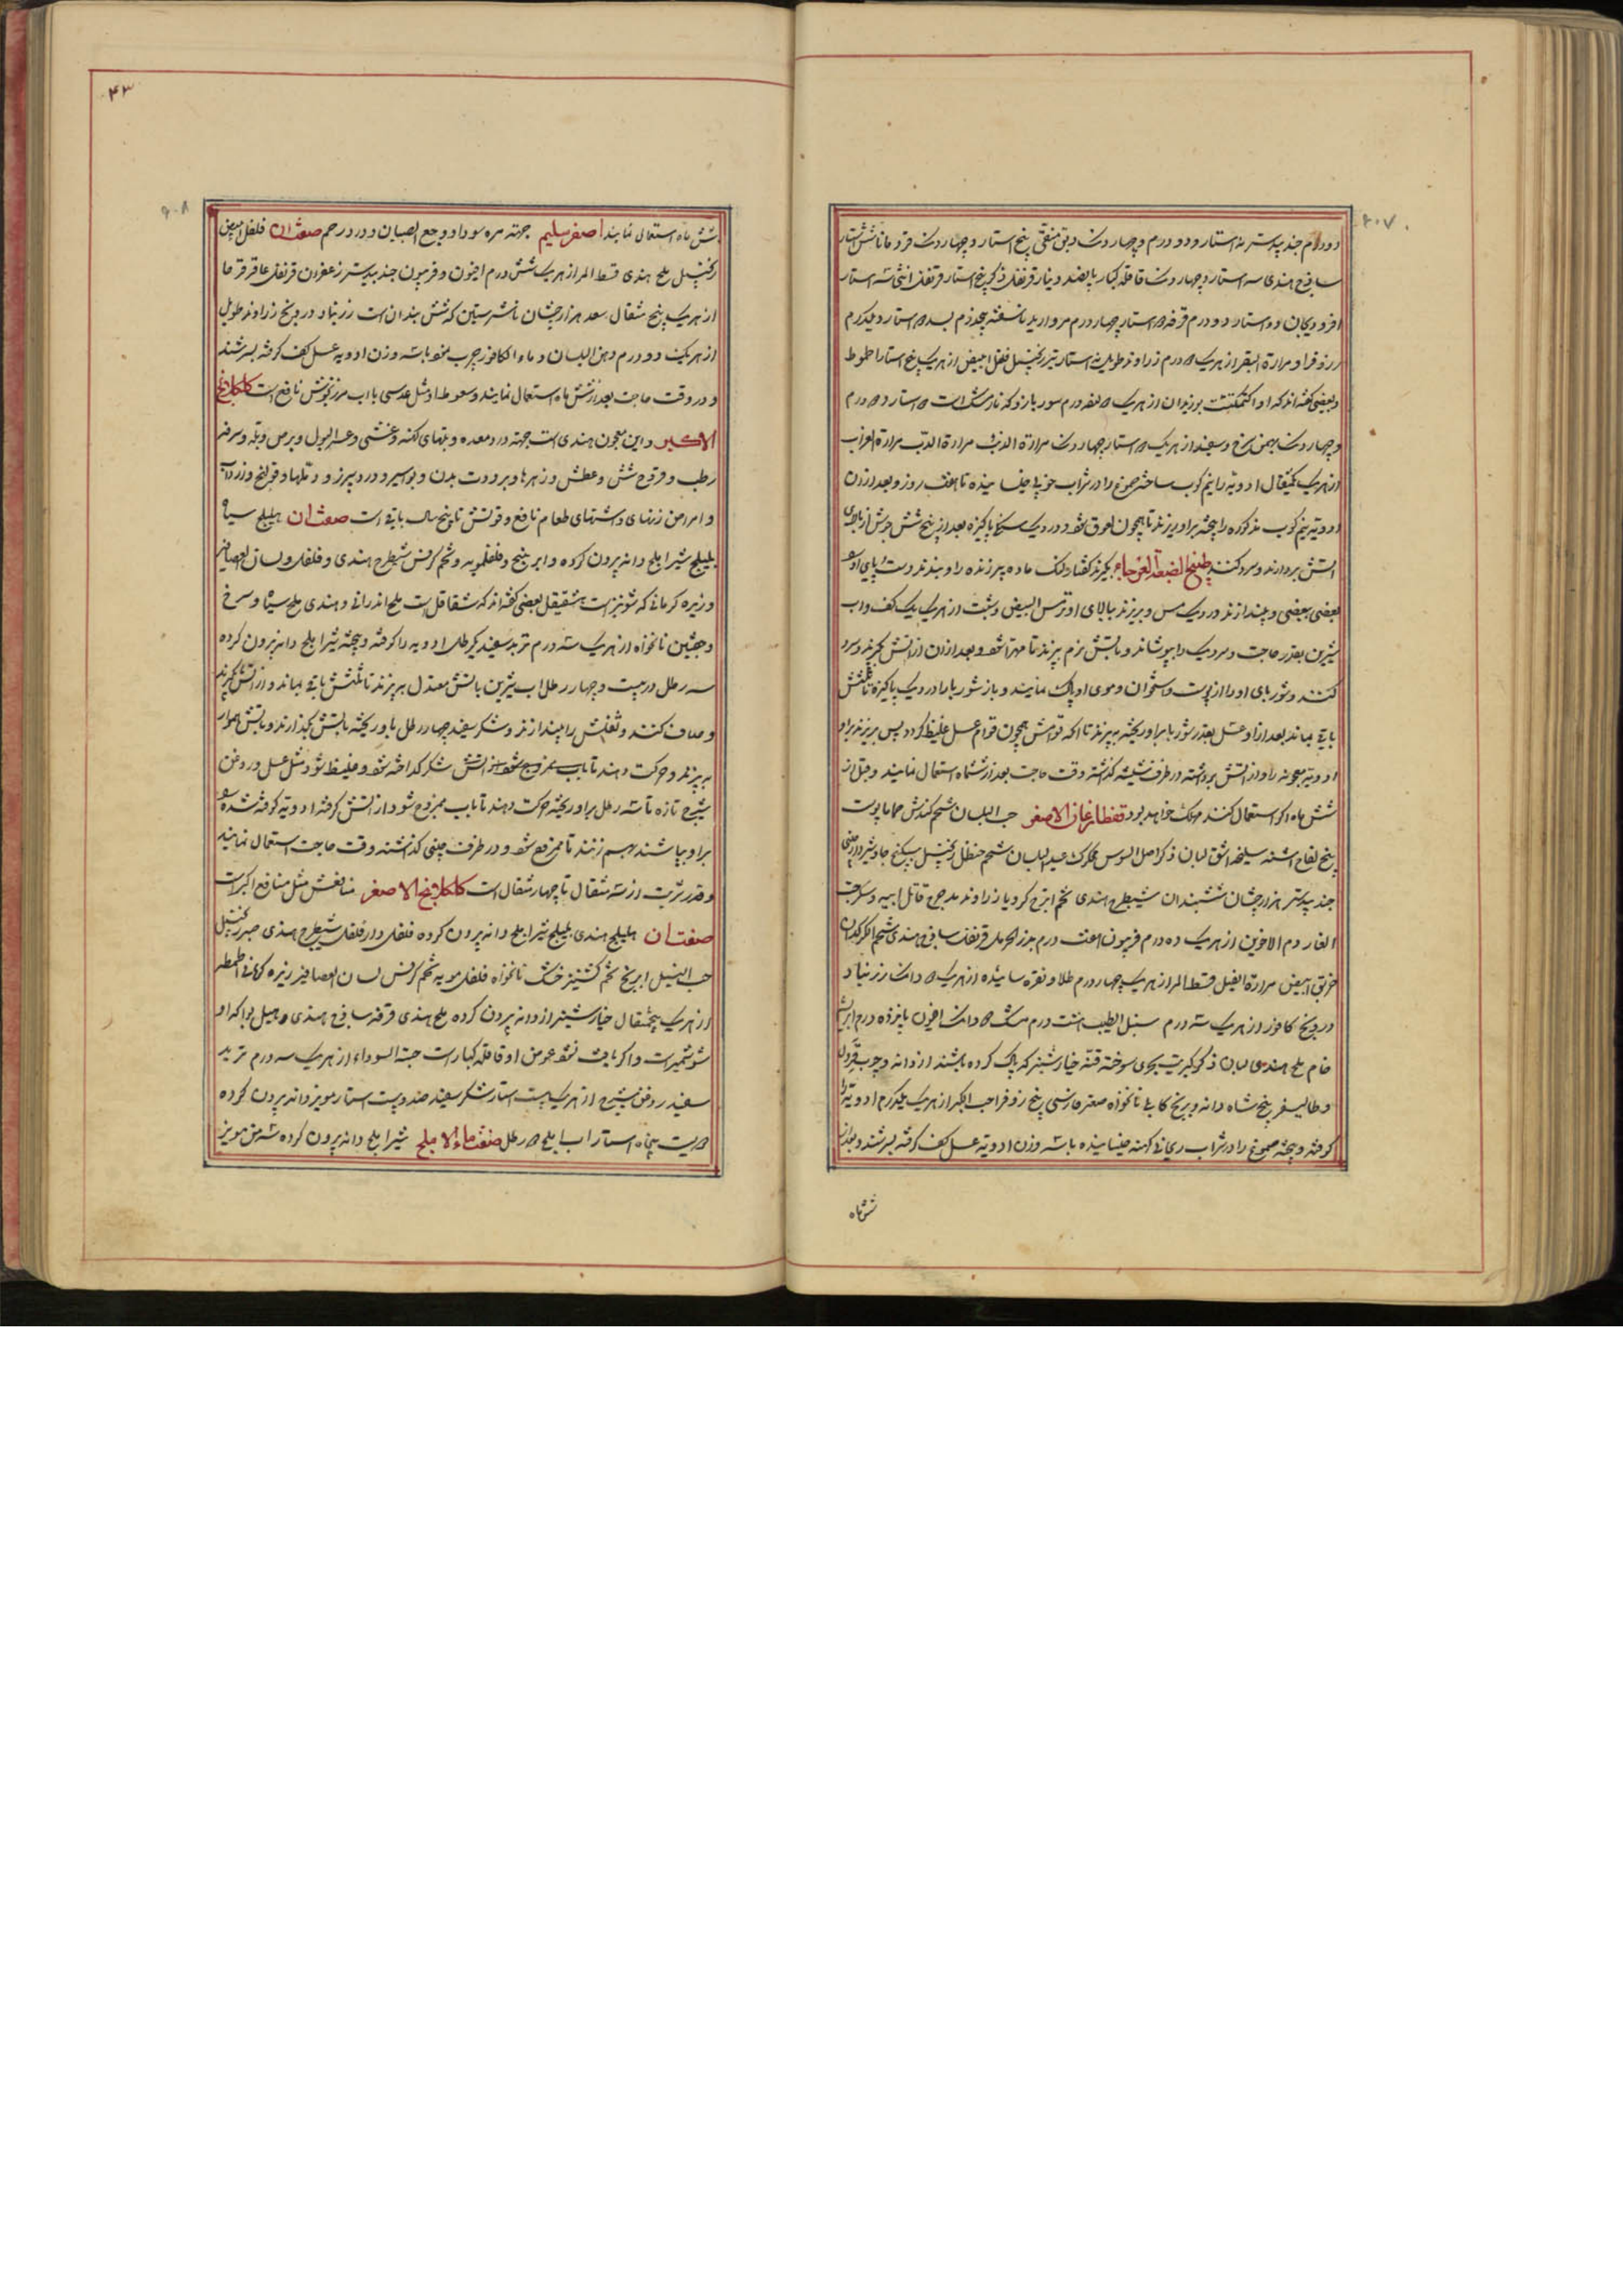 ۲۰۷
دو درم جند بیدستر نه استار و دو درم و چهار دونک دبق منقی پنج استار و چهار دونک قردمانا شش استار
ساذج هندی سه استار و چهار دونک قاقله کبار پانصد دینار قرنفل ذکر پنج استار قرنفل انثی سه استار
دو استار دو درم قرفه استار چهار درم مروارید ناسفته درم استار و یکدرم
زوفرا و مرارة البقر از هریک درم زراوند طویل نه استار زنجبیل فلفل ابیض از هریک پنج استار
و بعضی گفته‌اند که او بوزیدان از هریک درم که استار درم
و چهار دونک بهمن سرخ و سفید از هریک استار چهار دونک مرارة الذئب مرارة الدب مرارة الغراب
از هریک یکمثقال ادویه را نیم کوب ساخته صموغ را در شراب خوب خیسانیده تا هفت روز و بعد از ان
ادویه نیم کوب مذکوره را پخته بر او ریزند تا همچون لعوق شود در دیک سنگی پاکیزه بعد از پنج شش جوش از بالای
اتش بردارند و سرد کنند طبیخ الضبعة العرجاء بگیرند کفتار لنک ماده پیر زنده را و ببندند دست و پای او
بعضی ببعضی و بیندازند در دیک مس و بریزند بالای او ترمس ابیض و شبت از هریک یک کف و اب
شیرین بقدر حاجت و سر دیک را بپوشانند و باتش نرم بپزند تا مهرا شود و بعد از ان از اتش بگیرند و سرد
کنند و شوربای او را از پوست و استخوان و موی او پاک نمایند و باز شوربا را در دیک پاکیزه تا ثلثش
باقی بماند بعد از او عسل بقدر شوربا بر او ریخته بپزند تا انکه قوامش همچون قوام عسل غلیظ گردد پس بریزند بر او
ادویه معجونه را و از اتش برداشته در ظرف شیشه گذاشته وقت حاجت بعد از ششماه استعمال نمایند و قبل از
شش ماه اگر استعمال کنند مهلک خواهد بود قفطارغان الاصغر حب البلسان شحم کندش حماما پوست
بیخ لفاح اشنه سلیخه اشق لبان ذکر اصل السوس عید البلسان شحم حنظل زنجبیل سکبینج جاوشیر دارچینی
جند بیدستر هزارجشان ششبندان شیطرج هندی تخم اترج کرویا زراوند مدحرج قاتل ابیه و حب
الغار دم الاخوین از هریک ده درم فربیون هفت درم بذر الحرمل قرنفل ساذج هندی شحم الکرکدان
خربق ابیض مرارة الفیل قسط المر از هریک چهار درم طلا و نقره سائیده از هریک دانک زرنباد
درونج کافور از هریک سه درم سنبل الطیب هشت درم مشک دانک افیون پانزده درم ابریشم
خام ملح هندی لبان ذکر کبریت بحری سوخته قنه خیارشنبر که پاک کرده باشند از دانه و چوب
و طالیسفر بیخ شاه دانه و برنج کابلی نانخواه صعتر فارسی بیخ زوفرا حب الکبر از هریک یکدرم ادویه را
کوفته و بیخته صموغ را در شراب ریحانی کهنه خیسانیده با سه وزن ادویه عسل کف گرفته بسرشند و بعد از
شش ماه
۴۳
۲۰۸
شش ماه استعمال نمایند اصفر سلیم جهته مره سودا و وجع الصبیان و درد رحم صفت ان فلفل ابیض
زنجبیل ملح هندی قسط المر از هریک شش درم افیون و فربیون جند بیدستر زعفران قرنفل عاقرقرحا
از هریک پنج مثقال سعد هزارجشان فاشرستین که شش بندان است زرنباد درونج زراوند طویل
از هریک دو درم دهن البلسان و ماء الکافور چرب نموده با سه وزن ادویه عسل کف گرفته بسرشند
و در وقت حاجت بعد از شش ماه استعمال نمایند و سعوط او مثل عدسی با اب مرزنجوش نافع است کلکلانج
الاکبر و این معجون هندی است جهته درد معده و تبهای کهنه و غشی و عسر البول و برص و بهق و سرفه
رطب و قروح شش و عطش و زهرها و برودت بدن و بواسیر و درد سپرز و دملها و قولنج وزرداب
و امراض زنها و اشتهای طعام نافع و قوتش تا پنج سال باقی است صفت ان هلیلج سیاه
بلیلج شیر املج دانه بیرون کرده و ابرنج و فلفلمویه و تخم کرفس شیطرج هندی و فلفل و لسان العصافیر
و زیره کرمانی که شونیز است شقیقل بعضی گفته‌اند که شقاقل است ملح اندرانی و هندی ملح سیاه و سرخ
و نانخواه از هریک سه درم تربد سفید یکرطل ادویه را کوفته و بیخته شیر املج دانه بیرون کرده
سه رطل در بیست و چهار رطل اب شیرین باتش معتدل بپزند تا ثلثش باقی بماند و از اتش بگیرند
و صاف کنند و ثفلش را بیندازند و شکر سفید چهار رطل باو ریخته باتش بگذارند و باتش هموار
بپزند و حرکت دهند تا باب ممزوج شود از اتش شکر گداخته شود و غلیظ شود مثل عسل و روغن
شیرج تازه تا سه رطل بر او ریخته حرکت دهند تا باب ممزوج شود از اتش گرفته ادویه کوفته شده را
بر او بپاشند و بهم زنند تا ممزوج شود و در ظرف چینی گذاشته وقت حاجت استعمال نمایند
و قدر شربت از سه مثقال تا چهار مثقال است کلکلانج الاصغر منافعش مثل منافع اکبر است
صفت ان هلیلج هندی بلیلج شیر املج دانه بیرون کرده فلفل دارفلفل شیطرج هندی زنجبیل
حب النیل ابرنج تخم کشنیز خشک نانخواه فلفل مویه تخم کرفس لسان العصافیر زیره کرمانی
از هریک پنجمثقال خیارشنبر از دانه بیرون کرده ملح هندی قرفه ساذج هندی و هیل بوا که او
شوشمیر است و اگر یافت نشود عوض او قاقله کبار است حبة السوداء از هریک سه درم تربد
سفید روغن شیرج از هریک بیست استار شکر سفید صد و بیست استار مویز دانه بیرون کرده
دویست پنجاه استار اب املج رطل صفت ماء الاملج شیر املج دانه بیرون کرده سه من مویز